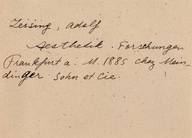 Zeising, Adolf
Aesthetik. Forschungen
Frankfurt a. M. 1885 chez Mein
dinger Sohn et Cie.